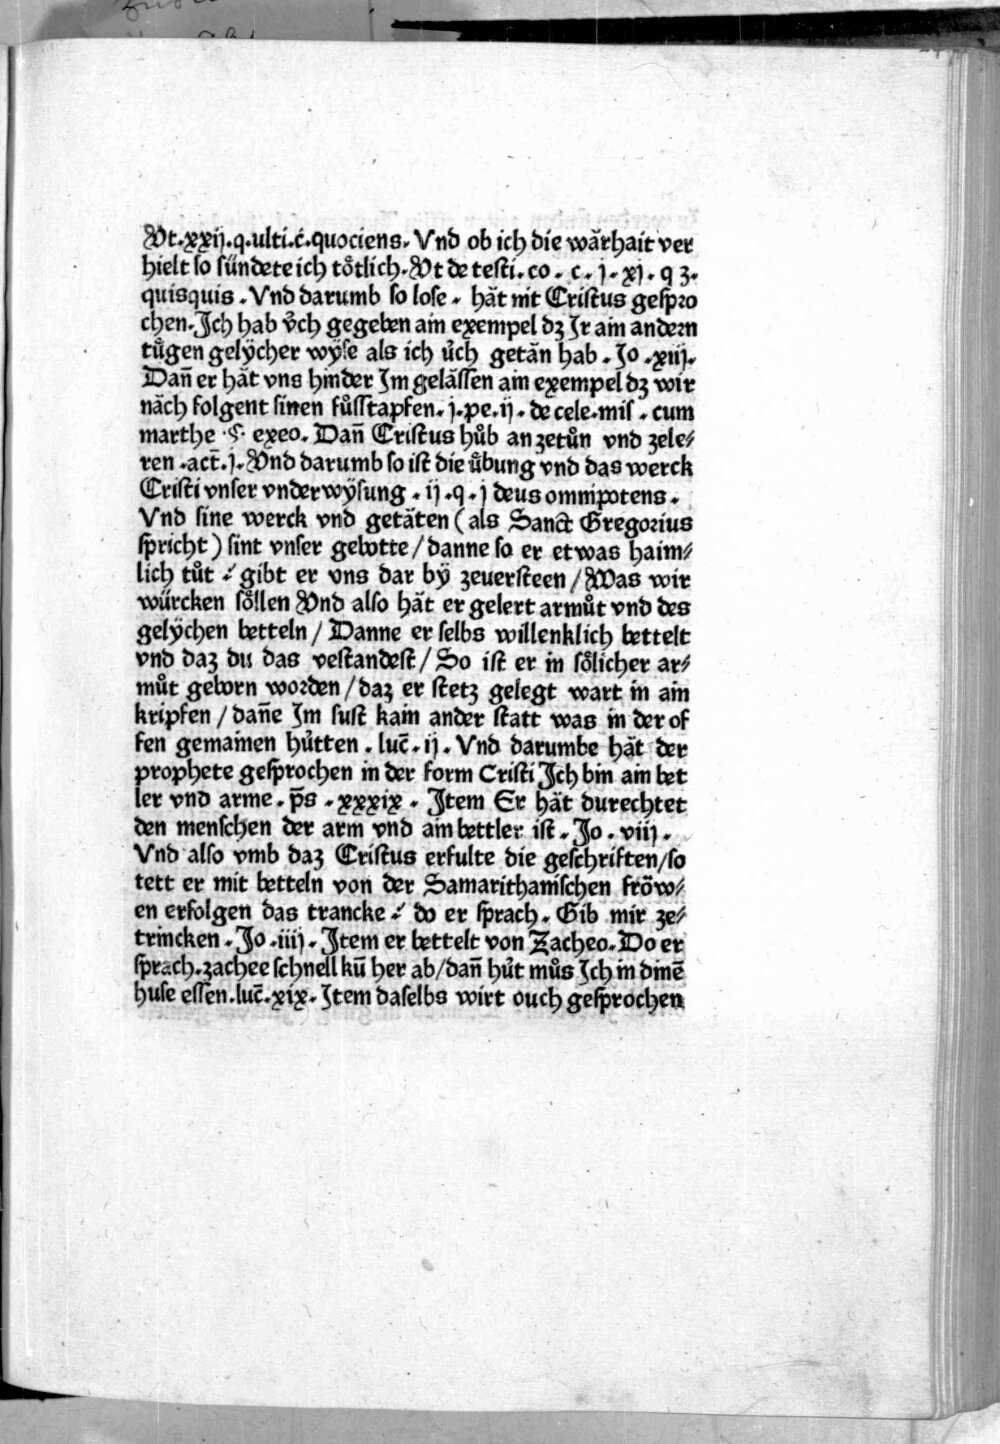 Vt.xxij.q.ulti.c̄.quociens. Vnd ob ich die wårhait ver
hielt so sündete ich tǒtlich. Vt de testi. co . c . j . xj . q ʒ.
quisquis . Vnd darumb so lose . håt nit Cristus gespro
chen. Jch hab v̊ch gegeben ain exempel dʒ Jr ain andern
tůgen gelÿcher wÿse als ich ůch getån hab . Jo .xiij.
Dan̄ er håt vns hinder Jm gelåssen ain exempel dʒ wir
nåch folgent sinen fůsstapfen. j. pe. ij . de cele. mis . cum
marthe . §. exeo. Dan̄ Cristus hůb an zetůn vnd zele⸗
ren .act̄. j. Vnd darumb so ist die ůbung vnd das werck
Cristi vnser vnderwÿsung . ij . q . j deus omnipotens .
Vnd sine werck vnd getåten ( als Sanct Gregorius
spricht ) sint vnser gebotte / danne so er etwas haim⸗
lich tůt ⸝ gibt er vns dar bÿ zeuersteen / Was wir
würcken sǒllen Vnd also håt er gelert armůt vnd des
gelÿchen betteln / Danne er selbs willenklich bettelt
vnd daz du das vestandest / So ist er in sǒlicher ar⸗
můt geborn worden / daz er stetz gelegt wart in ain
kripfen / dan̄e Jm sust kain ander statt was in der of
fen gemainen hůtten . luc̄. ij . Vnd darumbe håt der
prophete gesprochen in der form Cristi Jch bin ain bet
ler vnd arme . p̄s . xxxix . Jtem Er håt durechtet
den menschen der arm vnd ain bettler ist . Jo . viij .
Vnd also vmb daz Cristus erfulte die geschriften / so
tett er mit betteln von der Samarithanischen frǒw⸗
en erfolgen das trancke ⸝ do er sprach . Gib mir ze⸗
trincken . Jo .iiij . Jtem er bettelt von Zacheo. Do er
sprach. zachee schnell kum̄ her ab / dan̄ hůt můs Jch in dinē
huse essen. luc̄. xix. Jtem daselbs wirt ouch gesprochen